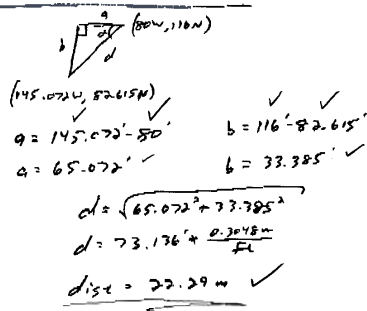 a (80W, 116N)
b α d
(145.072W, 82.615N)
✓ ✓ ✓ ✓
a = 145.072' - 80' b = 116' - 82.615'
a = 65.072' ✓ b = 33.385' ✓
d = √65.072² + 33.385²
d = 73.136' * 0.3048m/ft
dist = 22.29 m ✓